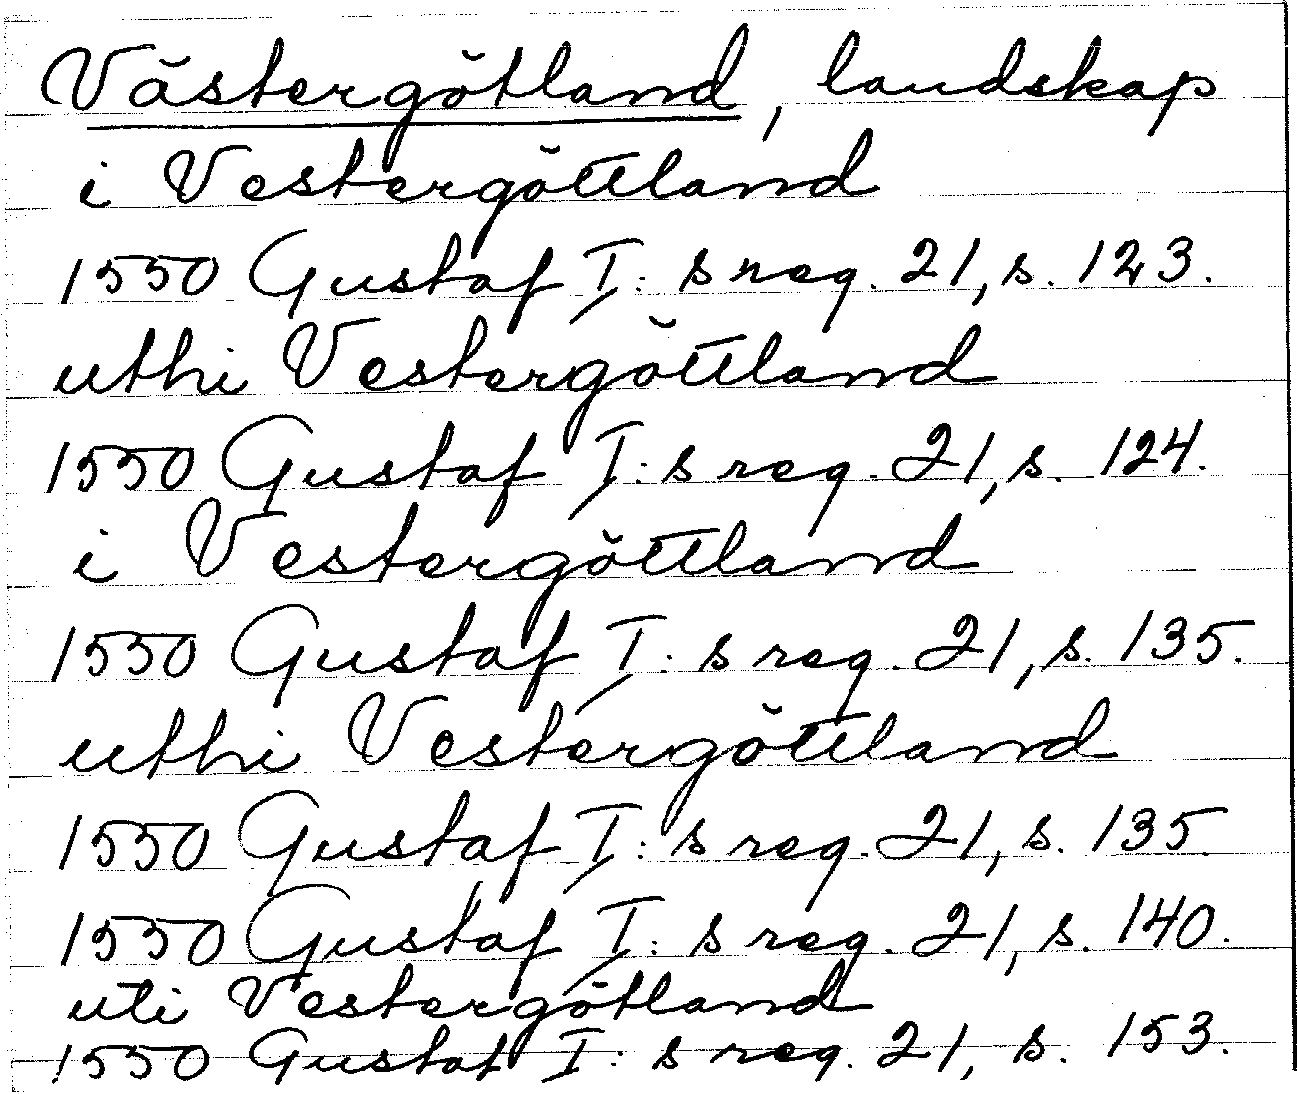 Västergötland, landskap
i Vestergöttland
1550 Gustaf I:s reg. 21, s. 123.
uthi Vestergöttland
1550 Gustaf I:s reg. 21, s. 124.
i Vestergöttland
1550 Gustaf I:s reg. 21, s. 135.
uthi Vestergöttland
1550 Gustaf I:s reg. 21, s. 135.
1550 Gustaf I:s reg. 21, s. 140.
uti Vestergötland
1550 Gustaf I:s reg. 21, s. 153.